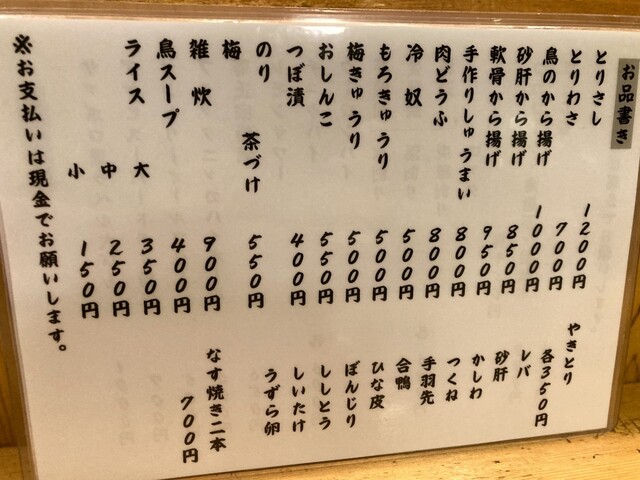 お品書き
とりさし 1200円
とりわさ 700円
鳥のから揚げ 1000円
砂肝から揚げ 850円
軟骨から揚げ 950円
手作りしゅうまい 800円
肉どうふ 800円
冷奴 500円
もろきゅうり 500円
梅きゅうり 500円
おしんこ 550円
つぼ漬 400円
のり
梅
茶づけ 550円
雑炊 900円
鳥スープ 400円
ライス 大 350円
中 250円
小 150円
※お支払いは現金でお願いします。
やきとり
各350円
レバ
砂肝
かしわ
つくね
手羽先
合鴨
ひな皮
ぼんじり
ししとう
しいたけ
うずら卵
なす焼き二本
700円